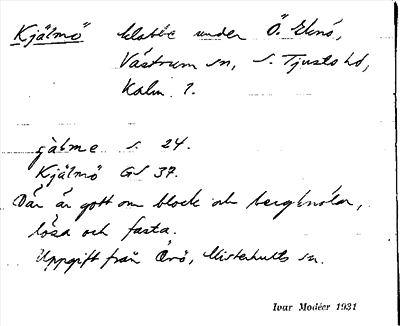 Kjälmö klabbe under Ö. Eknö,
Västrum sn, S. Tjusts hd,
Kalm. l.
jälme s. 24.
Kjälmö GS 37.
Där är gott om block och bergknölar,
lösa och fasta.
Uppgift från Örö, Misterhults sn.
Ivar Modéer 1931